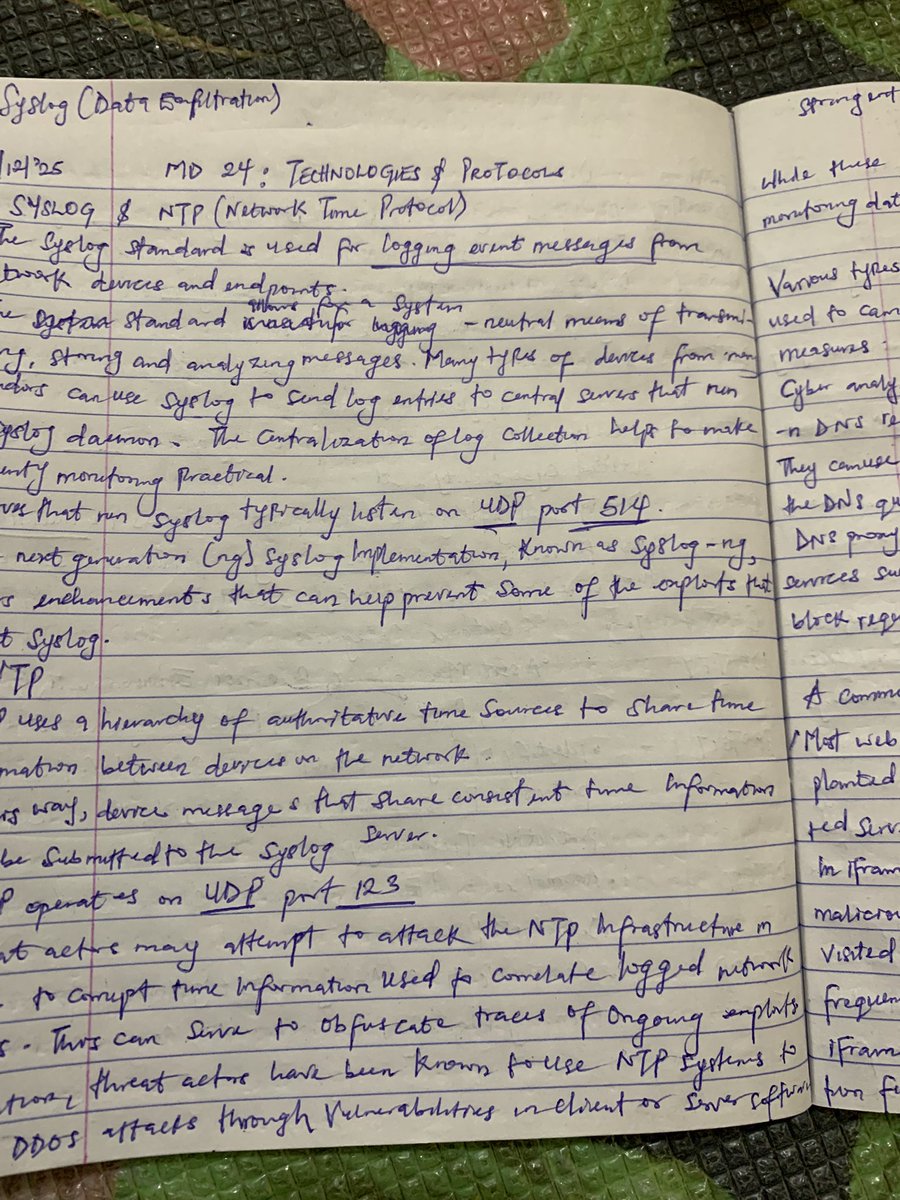 Syslog (Data Exfiltration)
/12/'25 MD 24: TECHNOLOGIES & PROTOCOLS
SYSLOG & NTP (Network Time Protocol)
The Syslog standard is used for logging event messages from
twork devices and endpoints.
allows for a System
standard logging - neutral means of transmi-
ng, storing and analyzing messages. Many types of devices from
ndors can use syslog to send log entries to central servers that run
syslog daemon. The centralization of log collection helps to make
urity monitoring practical.
rves that run syslog typically listen on UDP port 514.
next generation (ng) syslog implementation, known as syslog-ng,
rs enhancements that can help prevent some of the exploits that
t syslog.
NTP
P uses a hierarchy of authoritative time sources to share time
mation between devices on the network.
is way, device messages that share consistent time information
be submitted to the syslog server.
P operates on UDP port 123
at actors may attempt to attack the NTP infrastructure in
to corrupt time information used to correlate logged network
s. This can serve to obfuscate traces of ongoing exploits
ition, threat actors have been known to use NTP systems to
DDOS attacks through vulnerabilities in client or server software
While these
monitoring dat
Various types
used to cam
measures.
Cyber analy
-n DNS re
They can use
the DNS qu
DNS proxy
services su
block requ
A commo
Most web
planted
ted serv
in ifram
malicrou
visited
frequen
iframe